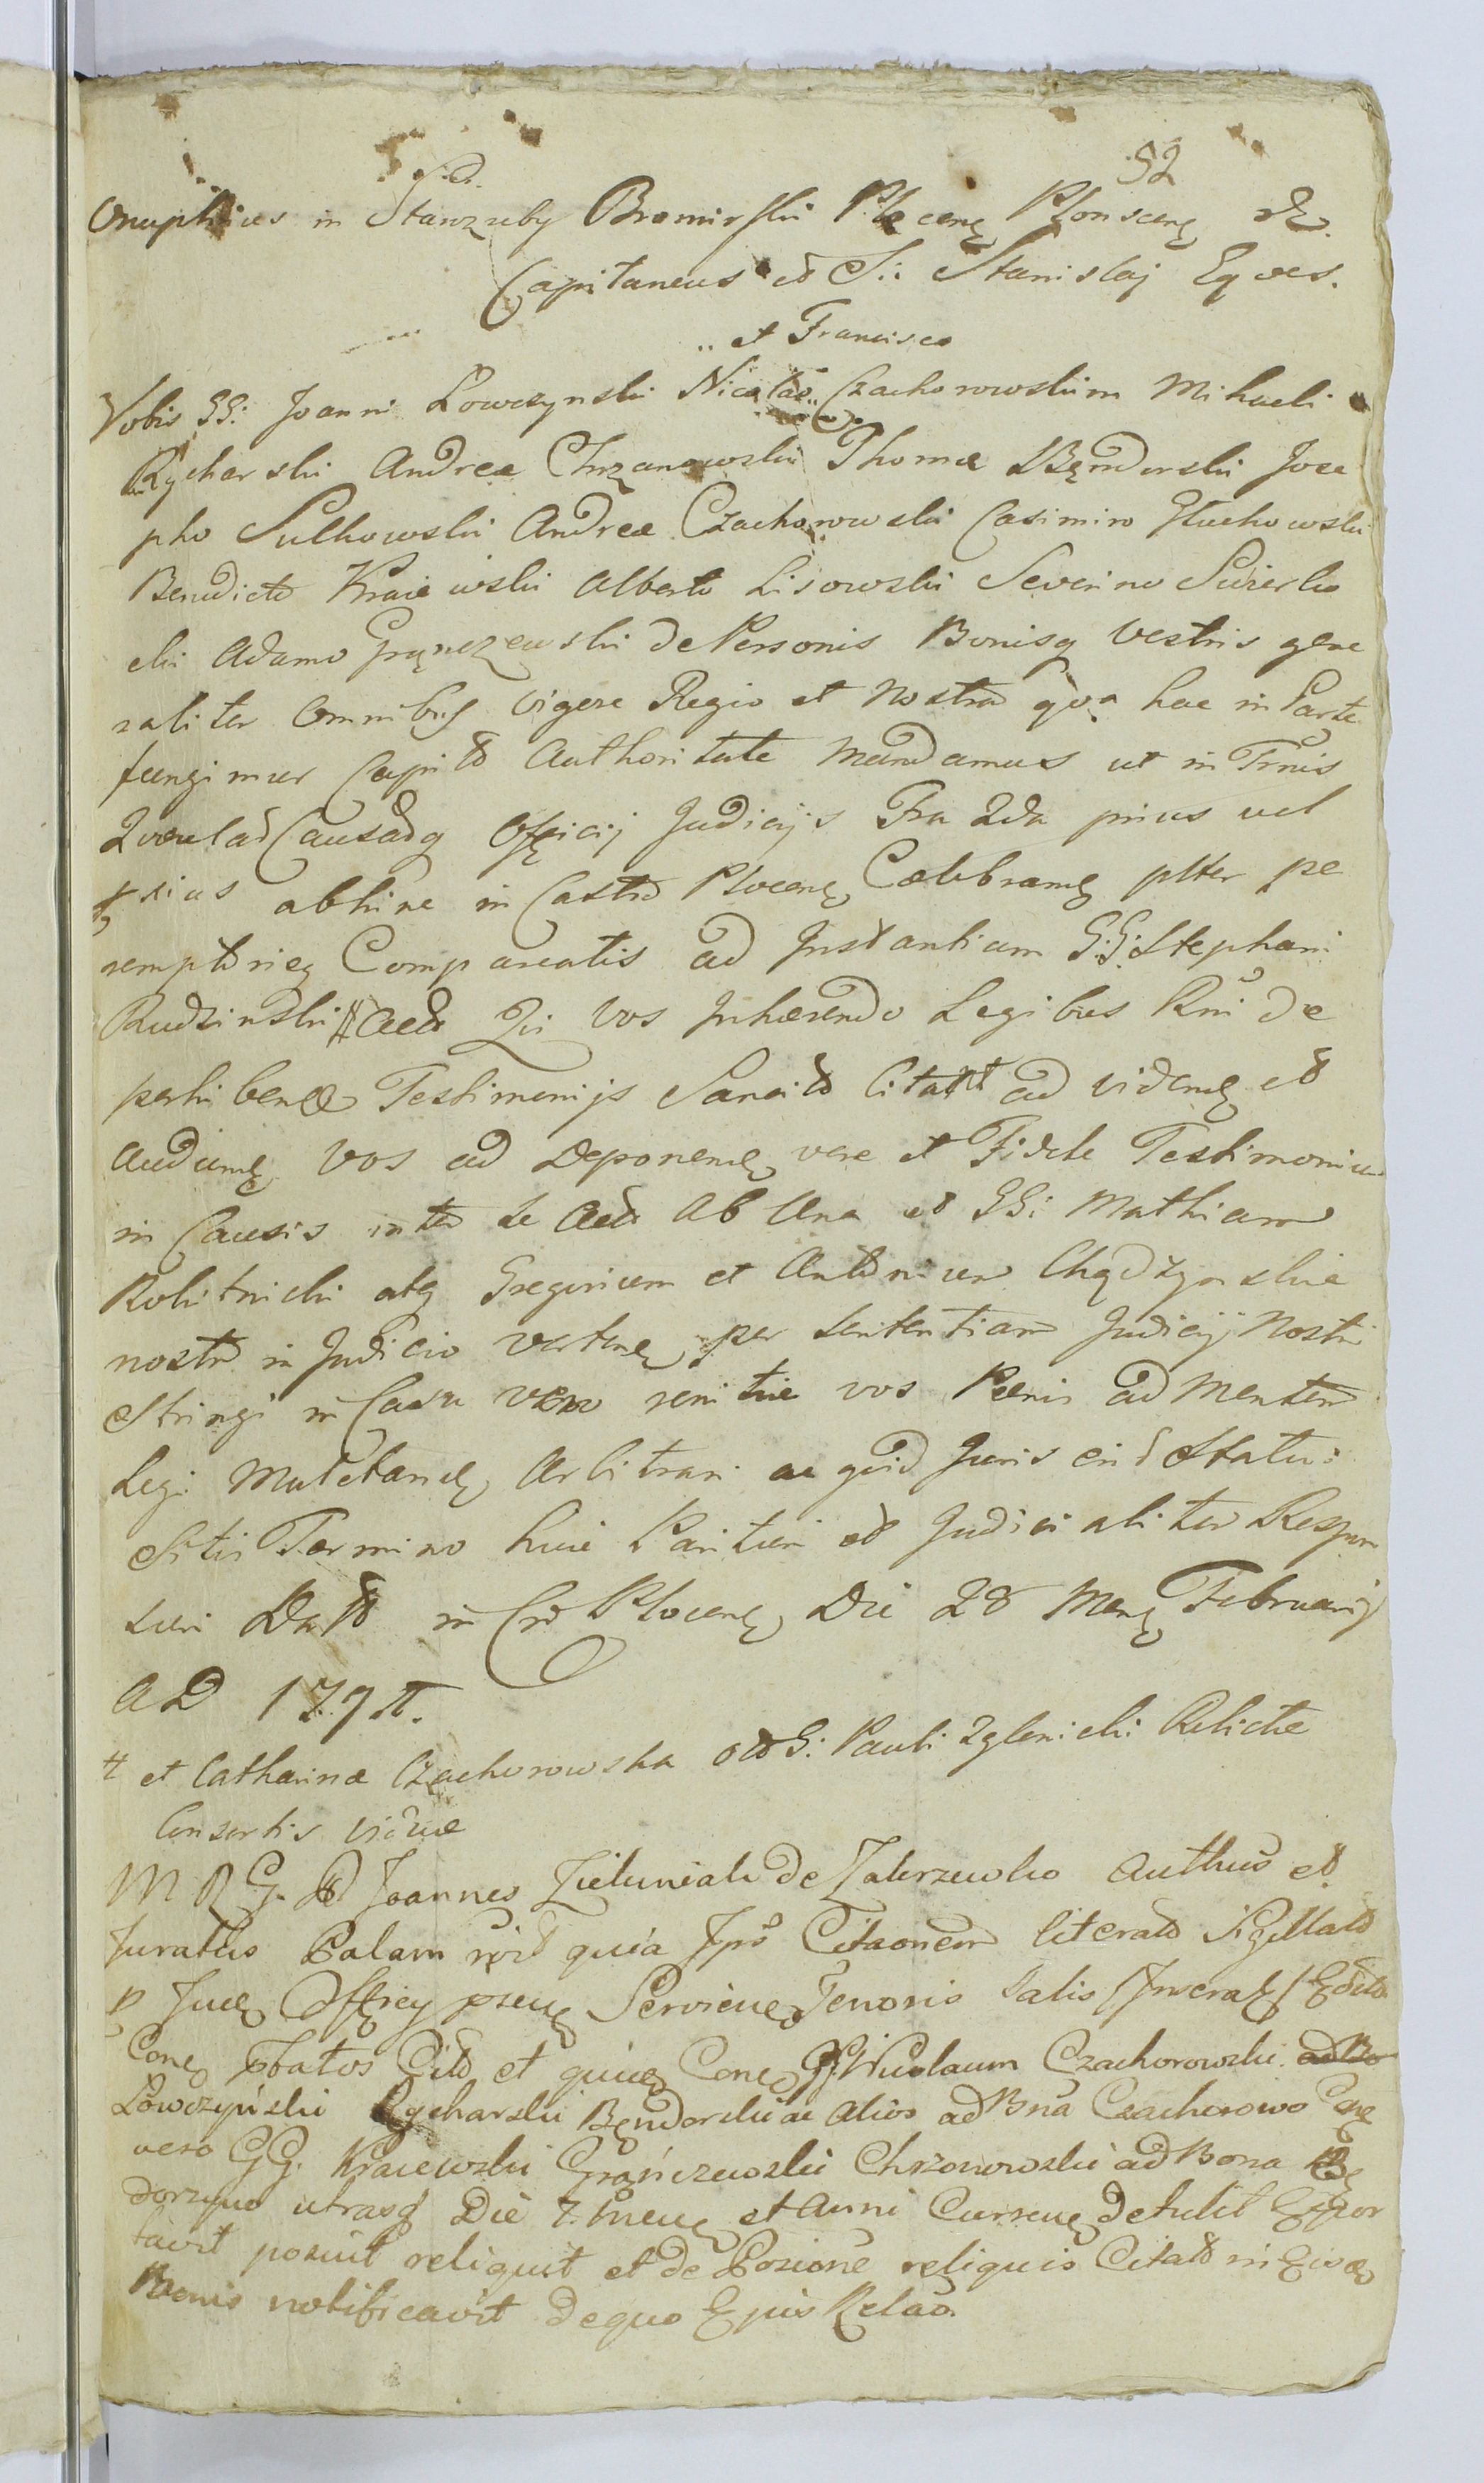 52
S. D.
Onuphrius in Starozreby Bromirski Plocenę Plonscenę &c.
Capitaneus et S: Stanislaj Eques.
.. et Francisco
Vobis GG: Joanni Lowczynski Nicolao .. Czachorowskim Michaeli
Rycharski Andreæ Chrzanowski Thomæ Bęndorski Jose
pho Sulkowski Andreæ Czachorowski Casimiro Głuchowski
Benedicto Kraiewski Alberto Lisowski Severino
ski Adamo Grąnczewski de Personis Bonisq vestris gene
raliter Omnibus vigore Regio et Nostra qua hac in Parte
fungimur Capitt Authoritate Mandamus ut in Trnis
Querelar Causarq Officij Judicijs Fra 2da prius vel
rius abhinc in Castro Plocenę Cælebramę ptter pe
remptorieq Compareatis ad Instantiam G:G: Stephani
Rudzinski # Act Qui vos Inhærendo Legibus Rni de
perhibendę Testimonijs Sancitt Citatt ad videndę et
audiendę vos ad Deponendę vere et Fidele Testimonium
in Causis inter se Act ab Una et GG: Mathiam
Rokitnicki atq Gregorium et Antonium Chądzynskie
nostro in Judicio vertenę per Sententiam Judicij Nostri
Stringi in Casu vero renitiæ vos Pænis ad Mentem
Legi Mulctandę Arbitrari ac quid Juris erit Statui
Sitis Termino huic Parituri et Judicialiter Respon
suri Datt in Cro Plocenę Die 28 Menę Februarij
AD 179π.
# et Catharinæ Czachorowska olt G: Pauli Zglenicki Relictæ
Consortis viduæ
M R G. Joannes Zieluniak de Zakrzewko Authus et
Juratus Palam rit quia Ipse Citaonem literatt Sigillatt
p Juę Officy prę Servieę Tenoris talis / Inseratę / Editt
Conę pfatos Citt et quiuę Conę GG. Nicolaum Czachorowski
Lowczyński Rycharski Bęndorski ac alios ad Bna Czachorowo Conę
vero GG. Kraiewski Grąńczewski Chrzonowski ad Bona Bę
dorzyno utrasq Die 7. hueuę et Anni Curreuę detulit Expor
tavit posuit reliquit et de Posione reliquis Citatt in Eisdę
Bonis notificavit de quo Ejus Relao.